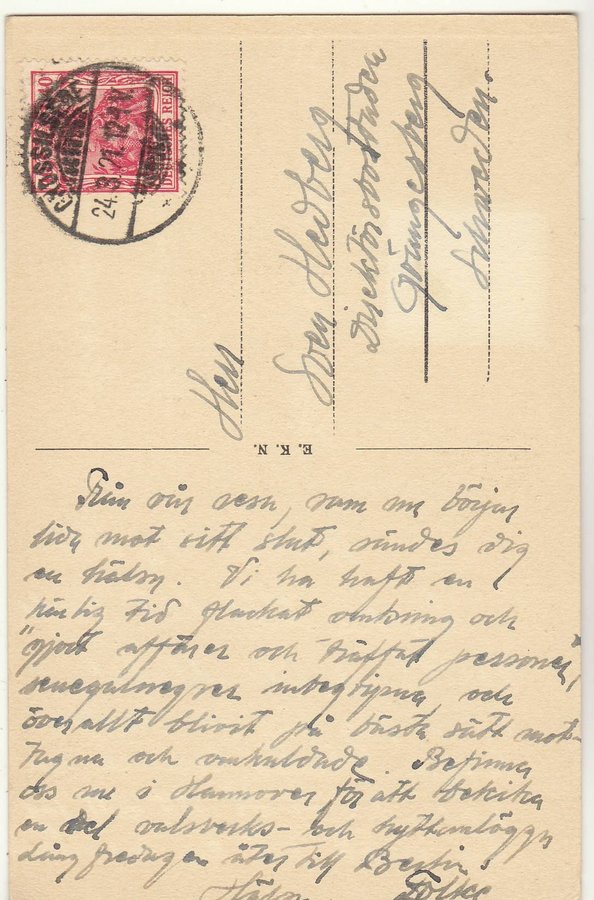 GROSSILSEDE
24.8.21. 12-1V.
10
DEUTSCHES REICH
Herr
Sven Hedberg
Direktörsbostaden
Grängesberg
Schweden.
E. K. N.
Från vår resa, som nu börjar
lida mot sitt slut, sändes dig
en hälsn. Vi ha haft en
härlig tid flackat omkring och
"gjort affärer och träffat personer",
senegalnegrer inbegripna, och
överallt blivit på bästa sätt mot-
tagna och omhuldade. Befinna
oss nu i Hannover för att bekika
en del valsverks- och hyttanläggn
fredagen åter till Berlin.
Folke